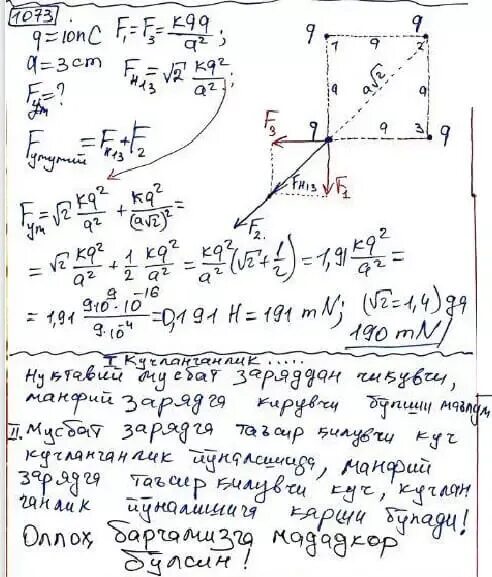 1073.
q=10nC F₁=F₃=kqq/a²;
a=3cm F_H13=√2 kq²/a²;
F_ум=?
F_умумий=F_H13+F₂
F_ум=√2 kq²/a² + kq²/(a√2)²=
=√2 kq²/a² + 1/2 kq²/a² = kq²/a² (√2+1/2)=1,91 kq²/a²=
=1,91 9·10⁹·10⁻¹⁶/9·10⁻⁴=0,191 H=191 mN; (√2=1,4) да
190 mN
q q
1 a 2
a a√2 a
q a 3 q
F₃
F_H13 F₁
F₂
I Кучланганлик .....
Нуқтавий мусбат заряддан чиқувчи,
манфий зарядга кирувчи бўлиши маълум
II. Мусбат зарядга таъсир қилувчи куч
кучланганлик йўналишида, манфий
зарядга таъсир қилувчи куч, кучлан
ганлик йўналишига қарши бўлади!
Оллоҳ барчамизга мададкор
бўлсин!